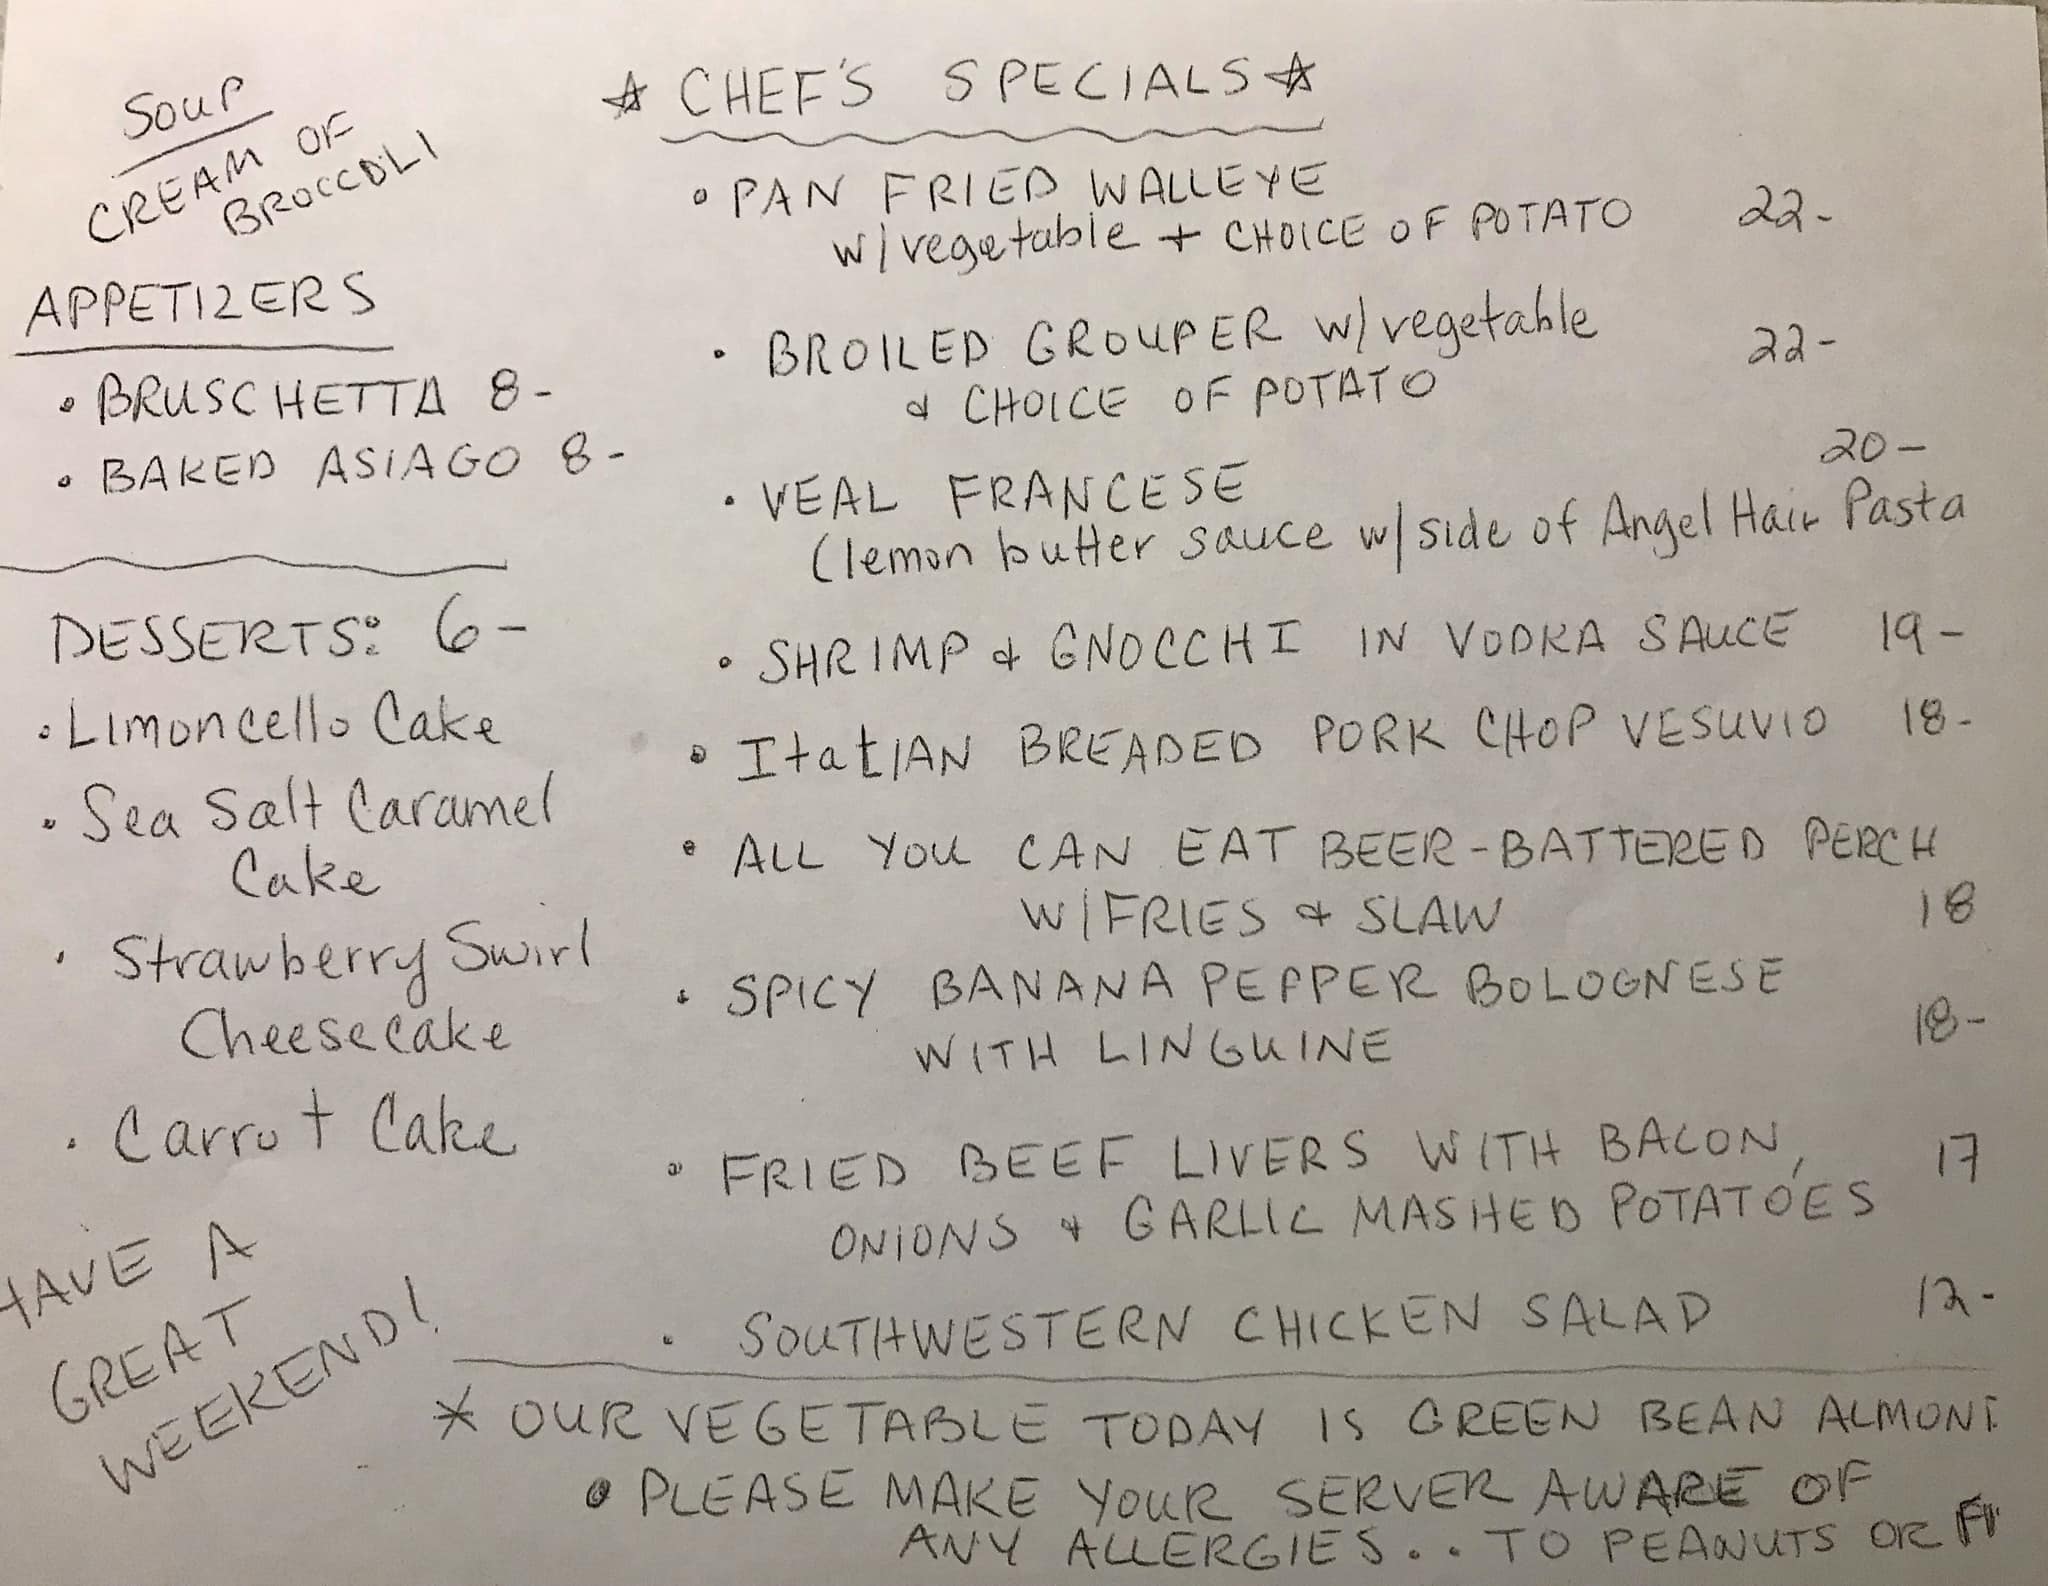 Soup
CREAM OF
BROCCOLI
APPETIZERS
• BRUSCHETTA 8-
• BAKED ASIAGO 8-
DESSERTS: 6-
• Limoncello Cake
• Sea Salt Caramel
Cake
• Strawberry Swirl
Cheesecake
• Carrot Cake
HAVE A
GREAT
WEEKEND!
☆ CHEF'S SPECIALS ☆
• PAN FRIED WALLEYE
w/vegetable + CHOICE OF POTATO 22-
• BROILED GROUPER w/vegetable
& CHOICE OF POTATO 22-
• VEAL FRANCESE 20-
(lemon butter sauce w/side of Angel Hair Pasta
• SHRIMP & GNOCCHI IN VODKA SAUCE 19-
• ItatIAN BREADED PORK CHOP VESUVIO 18-
• ALL YOU CAN EAT BEER-BATTERED PERCH
W/FRIES & SLAW 18
• SPICY BANANA PEPPER BOLOGNESE
WITH LINGUINE 18-
• FRIED BEEF LIVERS WITH BACON, 17
ONIONS & GARLIC MASHED POTATOES
• SOUTHWESTERN CHICKEN SALAD 12-
* OUR VEGETABLE TODAY IS GREEN BEAN
• PLEASE MAKE YOUR SERVER AWARE OF
ANY ALLERGIES.. TO PEANUTS OR